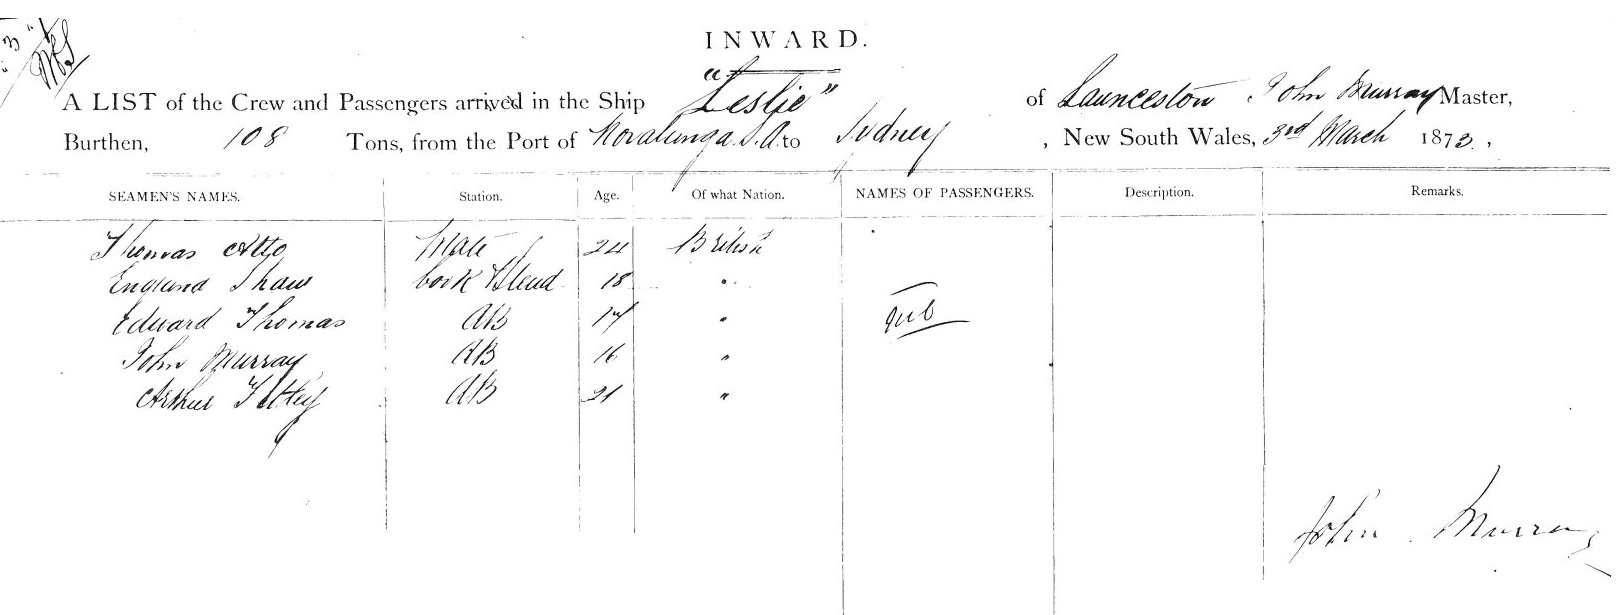 INWARD.
A LIST of the Crew and Passengers arrived in the Ship "Leslie" of Launceston, John Murray Master,
Burthen, 108 Tons, from the Port of Noralunga S.A. to Sydney, New South Wales, 3rd March 1873.,
SEAMEN'S NAMES. Station. Age. Of what Nation. NAMES OF PASSENGERS. Description. Remarks.
Thomas Atto Mate 24 British
England Shaw Cook & Stead 18 "
Edward Thomas AB 17 "
John Murray AB 16 "
Arthur AB 21 "
John Murray